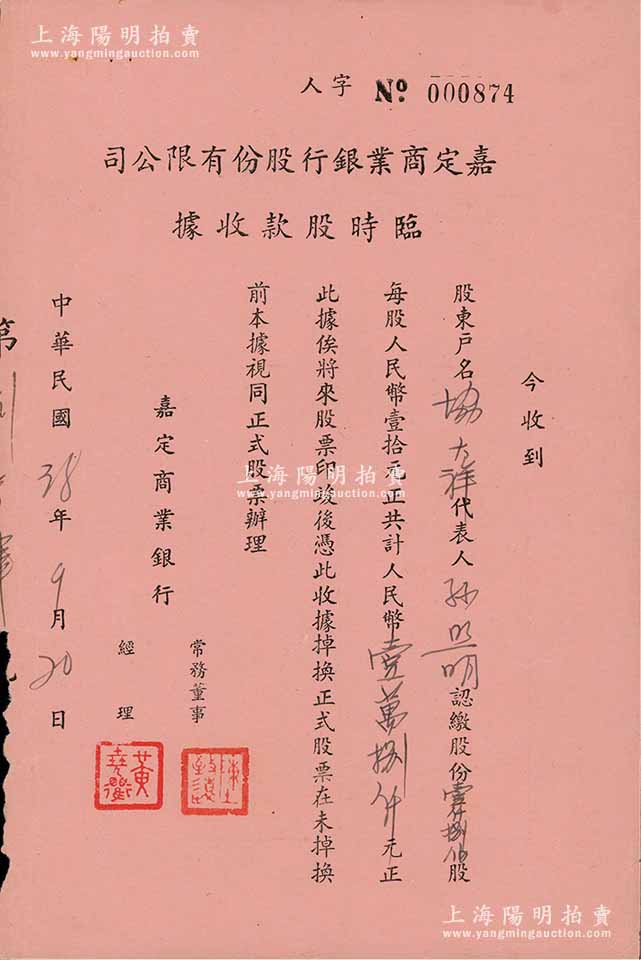 上海陽明拍賣
www.yangmingauction.com
人字 № 000874
嘉定商業銀行股份有限公司
臨時股款收據
今收到
股東戶名協大祥代表人孫照明認繳股份壹仟捌佰股
每股人民幣壹拾元正共計人民幣壹萬捌仟元正
此據俟將來股票印竣後憑此收據掉換正式股票在未掉換
前本據視同正式股票辦理
嘉定商業銀行
常務董事
經理
黃
中華民國38年9月20日
第
上海陽明拍賣
www.yangmingauction.com
上海陽明拍賣
www.yangmingauction.com